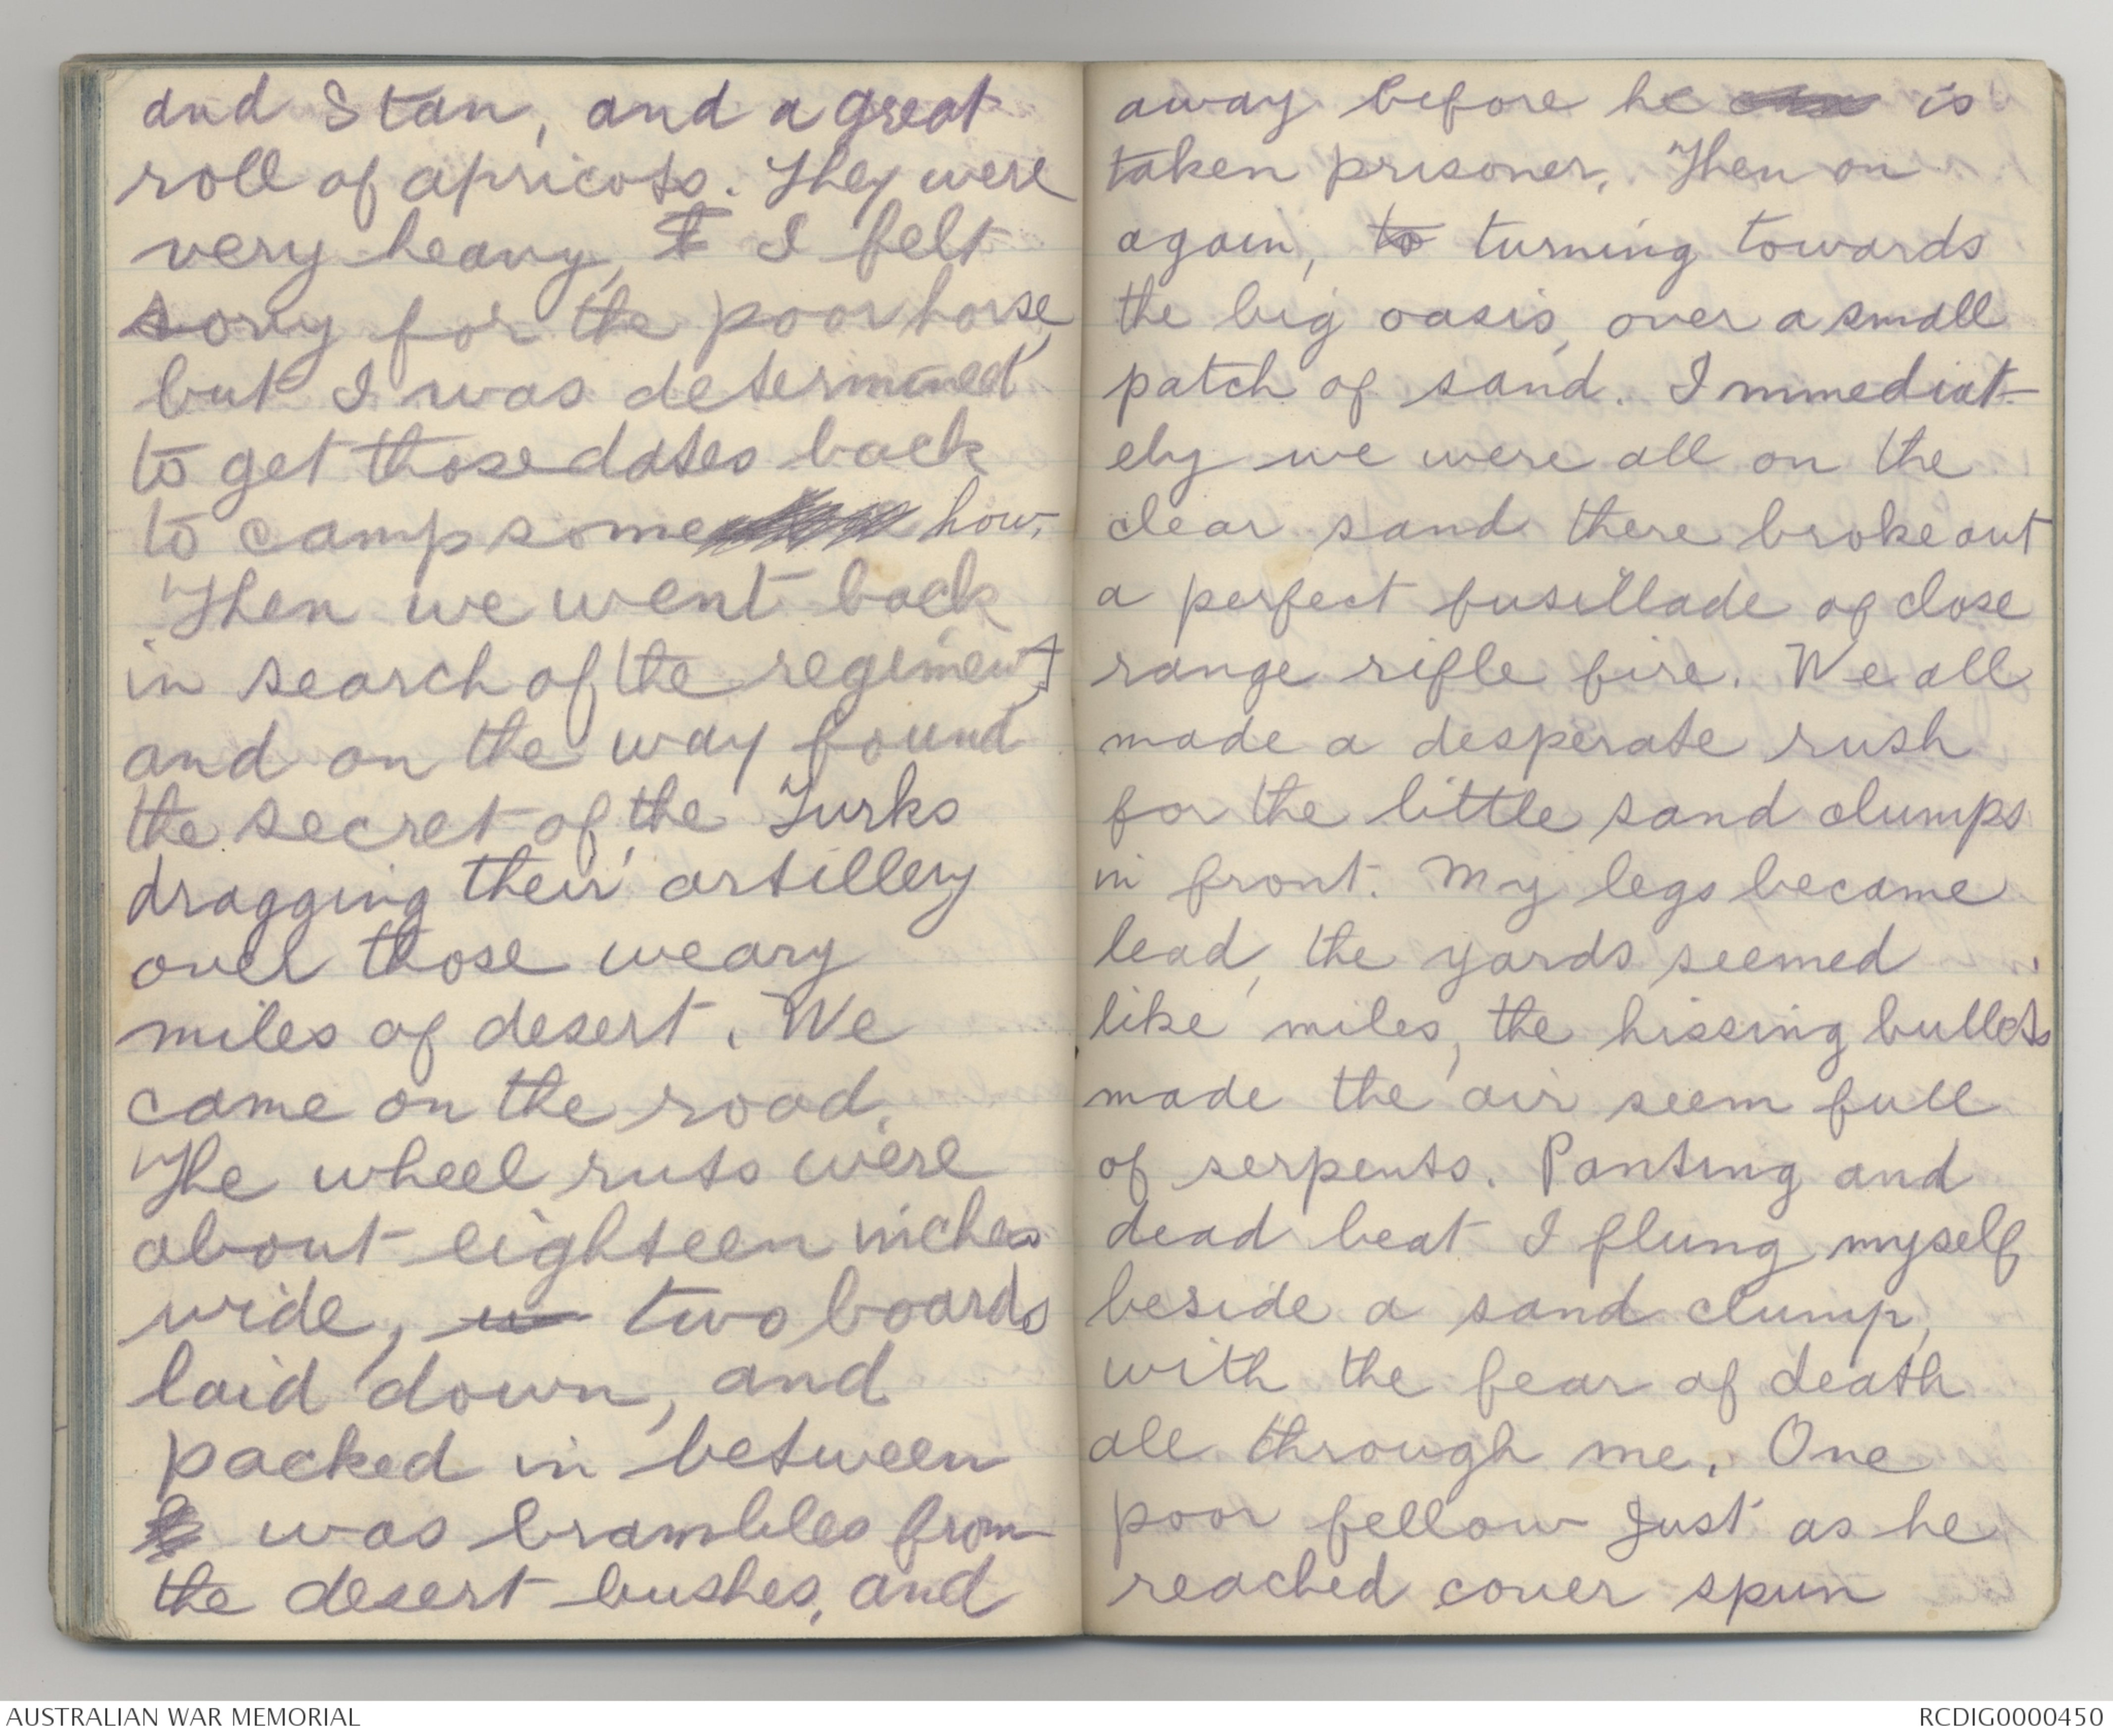 and Stan, and a great
roll of apricots. They were
very heavy, I I felt
sorry for the poor horse,
but I was determined
to get those dates back
to camp some how.
Then we went back
in search of the regiment
and on the way found
the secret of the Turks
dragging their artillery
over those weary
miles of desert. We
came on the road.
The wheel ruts were
about eighteen inches
wide, w two boards
laid down, and
packed in between
was brambles from
the desert bushes, and
away before he is
taken prisoner. Then on
again, to turning towards
the big oasis, over a small
patch of sand. Immediat-
ely we were all on the
clear sand there broke out
a perfect fusillade of close
range rifle fire. We all
made a desperate rush
for the little sand clumps
in front. My legs became
lead, the yards seemed
like miles, the hissing bullets
made the air seem full
of serpents. Panting and
dead beat I flung myself
beside a sand clump,
with the fear of death
all through me. One
poor fellow just as he
reached cover spun
AUSTRALIAN WAR MEMORIAL
RCDIG0000450